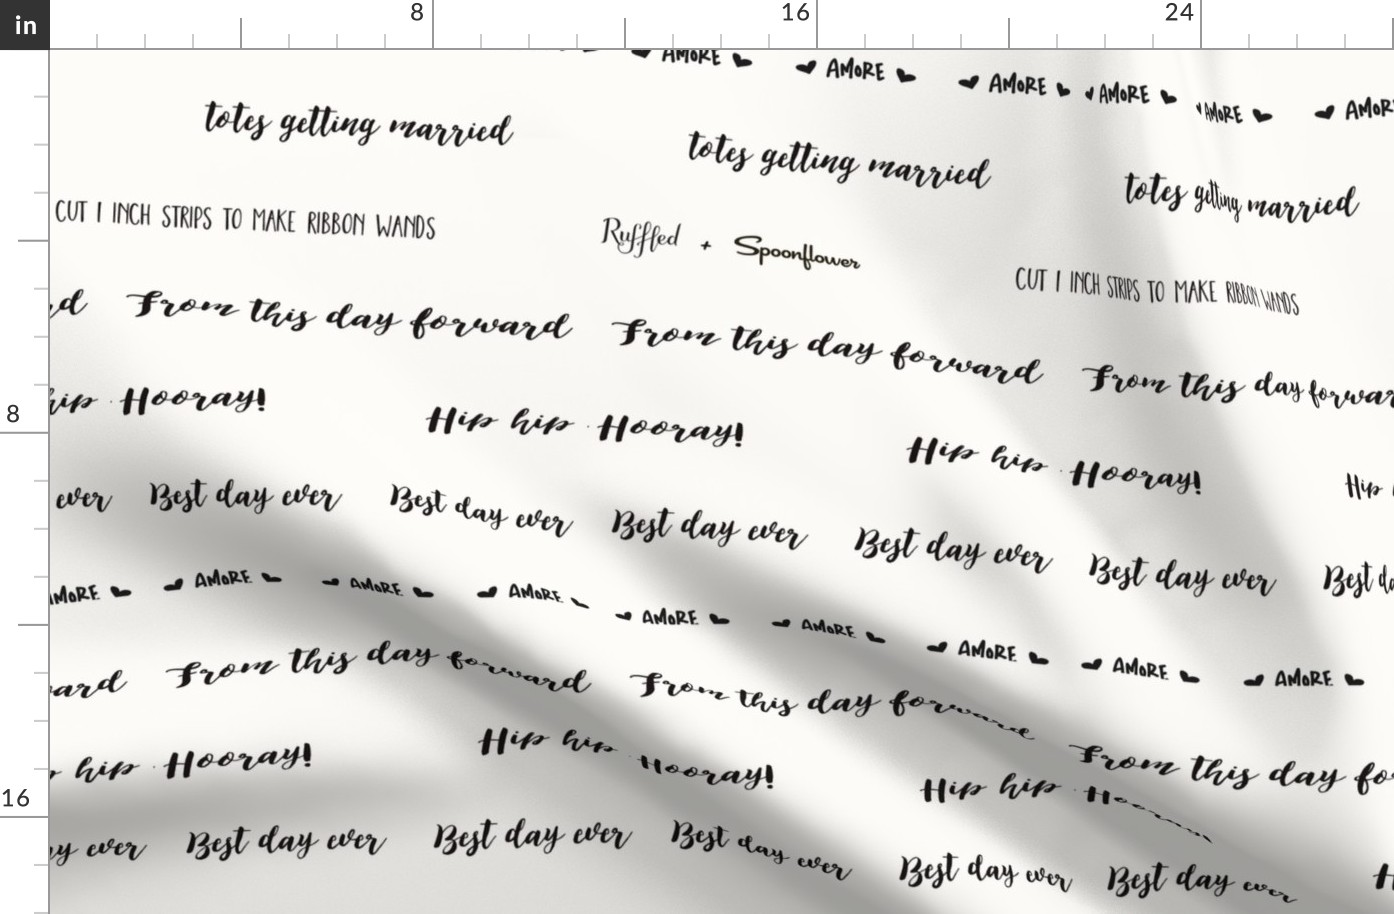 in
8 16 24
AMORE AMORE AMORE AMORE AMORE AMOR
totes getting married totes getting married totes getting married
CUT 1 INCH STRIPS TO MAKE RIBBON WANDS Ruffled + Spoonflower CUT 1 INCH STRIPS TO MAKE RIBBON WANDS
rd From this day forward From this day forward From this day forwar
8
hip Hooray! Hip hip Hooray! Hip hip Hooray! Hip
ever Best day ever Best day ever Best day ever Best day ever Best day ever Best da
AMORE AMORE AMORE AMORE AMORE AMORE AMORE AMORE AMORE
ward From this day forward From this day forward From this day fo
hip Hooray! Hip hip Hooray! Hip hip Hooray!
16
ay ever Best day ever Best day ever Best day ever Best day ever Best day ever H